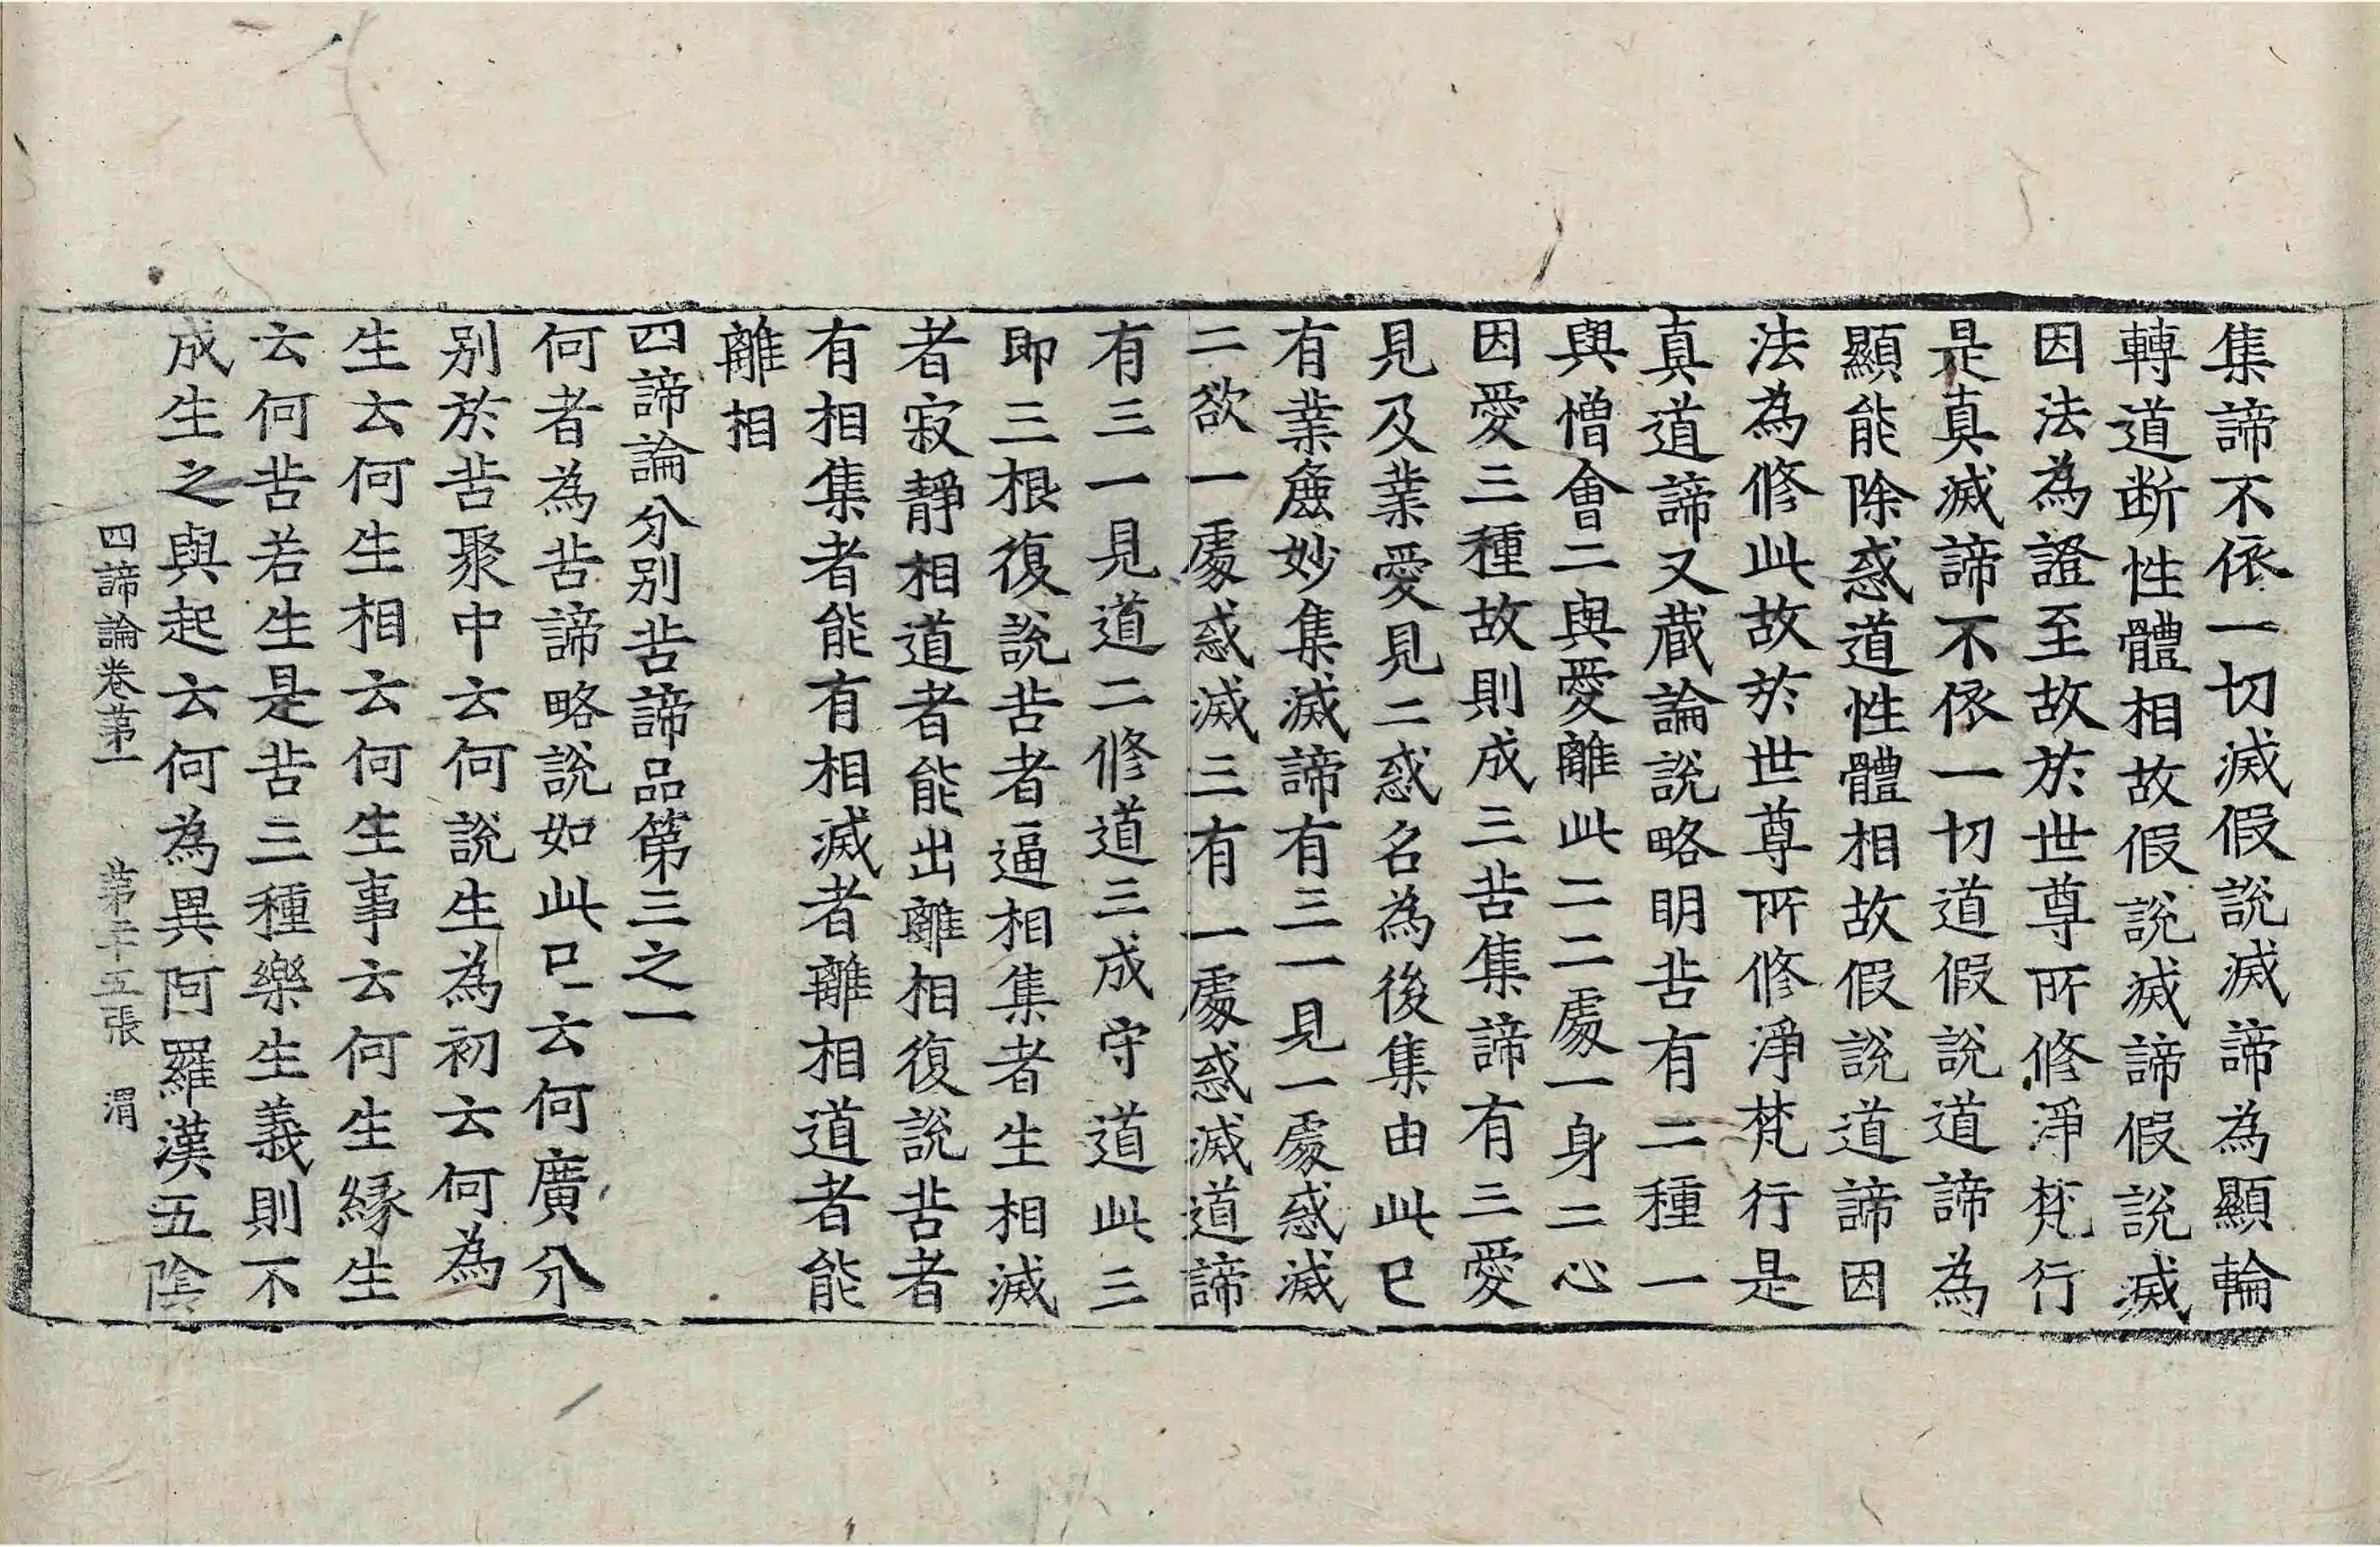 集諦不依一切滅假說滅諦為顯輪
轉道断性體相故假說滅諦假說滅
因法為證至故於世尊所修淨梵行
是真滅諦不依一切道假說道諦為
顯能除惑道性體相故假說道諦因
法為修此故於世尊所修淨梵行是
真道諦又蔵論說略明苦有二種一
與憎會二與愛離此二二處一身二心
因愛三種故則成三苦集諦有三愛
見及業愛見二惑名為後集由此已
有業麁妙集滅諦有三一見一處惑滅
二欲一處惑滅三有一處惑滅道諦
有三一見道二修道三成守道此三
即三根復說苦者逼相集者生相滅
者寂靜相道者能出離相復說苦者
有相集者能有相滅者離相道者能
離相
四諦論分別苦諦品第三之一
何者為苦諦略說如此已云何廣分
别於苦聚中云何說生為初云何為
生云何生相云何生事云何生緣生
云何苦若生是苦三種樂生義則不
成生之與起云何為異阿羅漢五陰
四諦論卷苐一 苐二十五張 渭